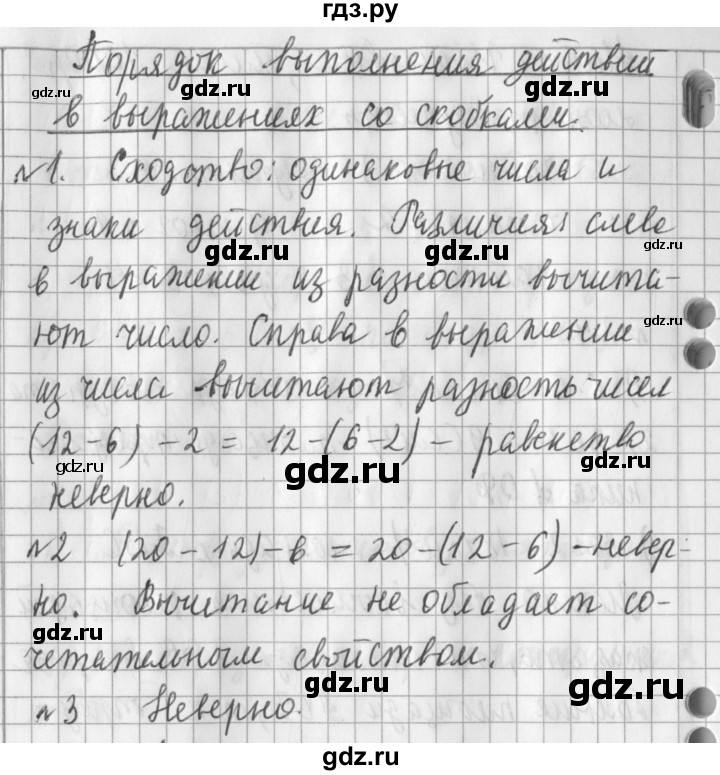 гдз.ру
Порядок выполнения действий
gdz.ru gdz.ru gdz.ru
в выражениях со скобками.
№1. Сходство: одинаковые числа и
знаки действия. Различия: слева
gdz.ru gdz.ru gdz.ru
в выражении из разности вычита-
ют число. Справа в выражении
gdz.ru
из числа вычитают разность чисел
(12-6)-2=12-(6-2) - равенство
gdz.ru gdz.ru gdz.ru
неверно.
№2 (20-12)-6=20-(12-6) - невер-
но. Вычитание не обладает со-
gdz.ru gdz.ru gdz.ru
четательным свойством.
gdz.ru gdz.ru
№3 Неверно.
gdz.ru